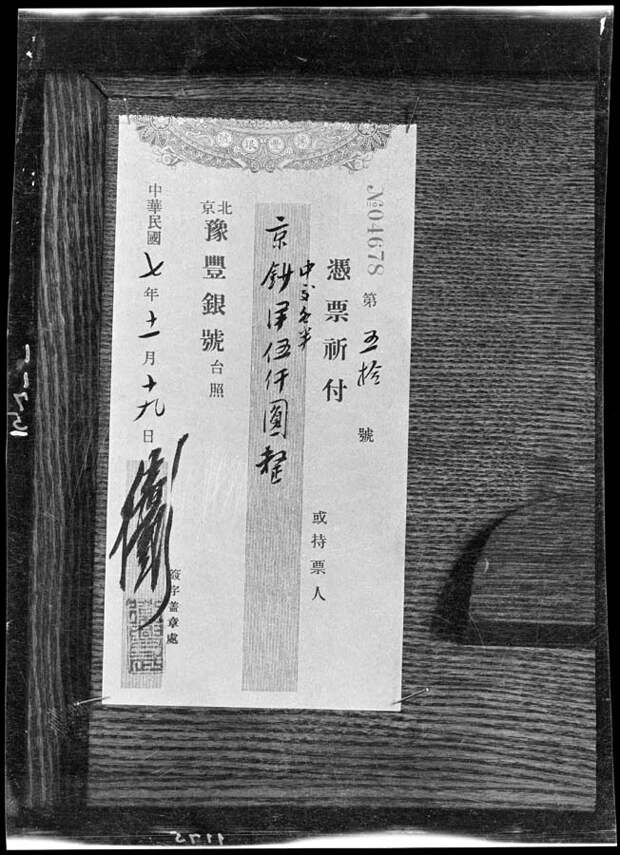 豫豐銀號
No 04678
第五拾號
憑票祈付
或持票人
中交各半
京鈔洋伍仟圓整
北京
豫豐銀號台照
中華民國七年十一月十九日
簽字蓋章處
1175